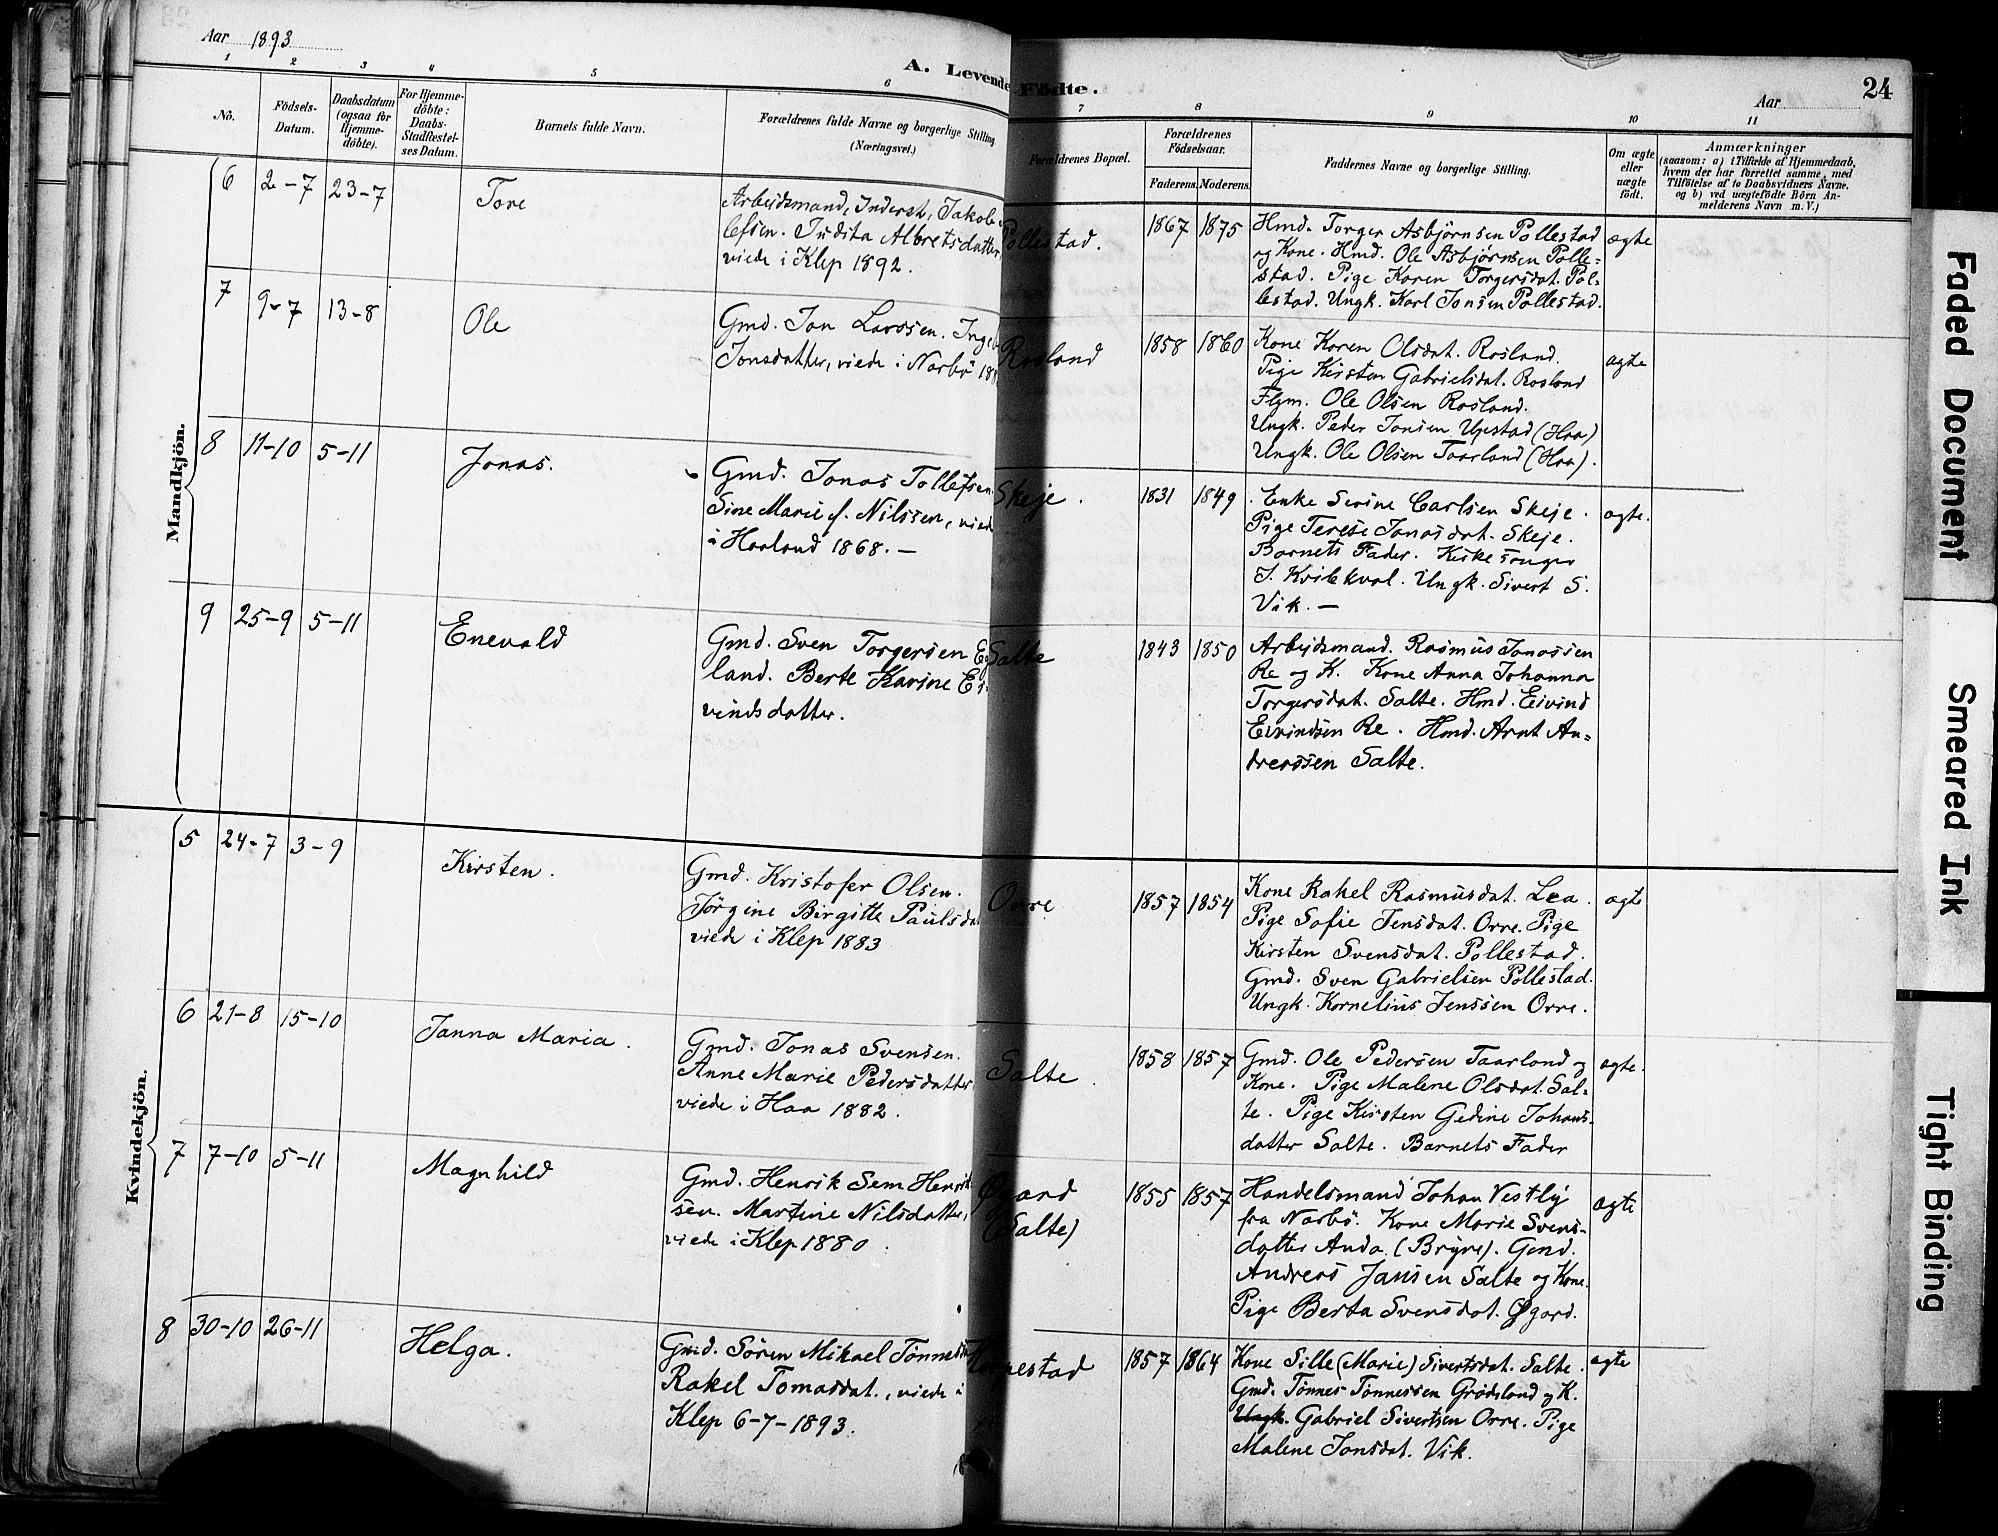 Aar 1893
A. Levende Fødte.
Aar 24
1 2 3 4 5 6 7 8 9 10 11
No.
Födsels-
Datum.
Daabsdatum
(ogsaa for
Hjemme-
döbte).
For Hjemme-
döbte:
Daabs-
Stadfæstel-
ses Datum.
Barnets fulde Navn.
Forældrenes fulde Navne og borgerlige Stilling
(Næringsvei.)
Forældrenes Bopæl.
Forældrenes
Födselsaar.
Faderens. Moderens.
Faddernes Navne og borgerlige Stilling.
Om ægte
eller
uægte
født.
Anmærkninger
(saasom: a) i Tilfælde af Hjemmedaab,
hvem der har forrettet samme, med
Tilföielse af to Daabsvidners Navne.
og b) ved uægtefödte Börn An-
melderens Navn m. V.)
Mandkjön.
6 2-7 23-7 Tore
Arbejdsmand, Inderst, Jakob
lefsen. Judita Albretsdatter
viede i Klep 1892.
Pollestad.
1867 1875
Hmd. Torger Asbjørnsen Pollestad
og Kone. Hmd. Ole Asbjørnsen Polle=
stad. Pige Karen Torgersdat. Pol-
lestad. Ungk. Karl Jonsen Pollestad.
ægte
7 9-7 13-8 Ole
Gmd. Jon Larssen. Ingeb
Jonsdatter, viede i Narbö 18
Rosland
1858 1860
Kone Karen Olsdat. Rosland.
Pige Kirsten Gabrielsdat. Rosland
Flgm. Ole Olsen Rosland.
Ungk. Peder Jonsen Upstad (Haa)
Ungk. Ole Olsen Taarland (Haa).
ægte
8 11-10 5-11 Jonas.
Gmd. Jonas Tollefsen
Sine Marie f. Nilssen, vied
i Haaland 1868. —
Skeje.
1831 1849
Enke Serine Carlsen Skeje.
Pige Terese Jonasdat. Skeje.
Barnets Fader. Kirkesanger
J. Kvilekval. Ungk. Sivert S.
Vik. —
ægte.
9 25-9 5-11 Enevald
Gmd. Sven Torgersen Eg
land. Berte Karine Ei
vindsdatter.
Salte
1843 1850
Arbejdsmand. Rasmus Jonassen
Re og K. Kone Anna Johanna
Torgersdat. Salte. Hmd. Eivind
Eivindsen Re. Hmd. Arnt An=
dreassen Salte.
Kvindekjön.
5 24-7 3-9 Kirsten.
Gmd. Kristofer Olsen.
Jörgine Birgitte Paulsda
viede i Klep 1883
Orre
1857 1854
Kone Rakel Rasmusdat. Lea.
Pige Sofie Jensdat. Orre. Pige
Kirsten Svensdat. Pollestad.
Gmd. Sven Gabrielsen Pollestad.
Ungk. Kornelius Jenssen Orre.
ægte
6 21-8 15-10 Janna Maria.
Gmd. Jonas Svensen.
Anne Marie Pedersdatter
viede i Haa 1882.
Salte.
1858 1857
Gmd. Ole Pedersen Taarland og
Kone. Pige Malene Olsdat. Sal=
te. Pige Kirsten Gedine Johans-
datter Salte. Barnets Fader
ægte.
7 7-10 5-11 Magnhild
Gmd. Henrik Sem Henrik
sen. Martine Nilsdatter,
viede i Klep 1880.
Øgard
(Salte)
1855 1857
Handelsmand Johan Vestly
fra Narbö. Kone Marie Svens-
datter Anda. (Bryne). Gmd.
Andreas Jansen Salte og Kone.
Pige Berta Svensdat. Øgard.
ægte
8 30-10 26-11 Helga.
Gmd. Sören Mikael Tönness
Rakel Tomasdat., viede i
Klep 6-7-1893.
nestad
1857 1864
Kone Sille (Marie) Sivertsdat. Salte.
Gmd. Tönnes Tönnessen Grødeland og K.
Ungk. Gabriel Sivertsen Orre. Pige
Malene Jonsdat. Vik.
ægte
Faded Document
Smeared Ink
Tight Binding